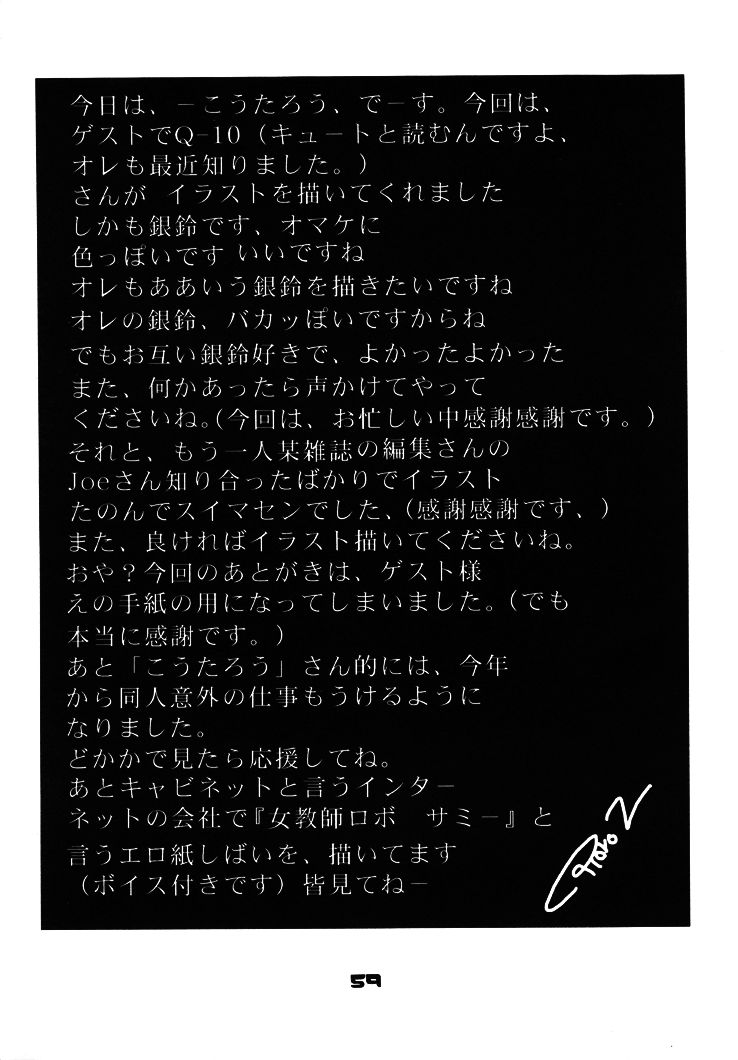 今日は、－こうたろう、で－す。今回は、
ゲストでQ-10（キュートと読むんですよ、
オレも最近知りました。）
さんが イラストを描いてくれました
しかも銀鈴です、オマケに
色っぽいです いいですね
オレもああいう銀鈴を描きたいですね
オレの銀鈴、バカッぽいですからね
でもお互い銀鈴好きで、よかったよかった
また、何かあったら声かけてやって
くださいね。（今回は、お忙しい中感謝感謝です。）
それと、もう一人某雑誌の編集さんの
Joeさん知り合ったばかりでイラスト
たのんでスイマセンでした、（感謝感謝です、）
また、良ければイラスト描いてくださいね。
おや？今回のあとがきは、ゲスト様
えの手紙の用になってしまいました。（でも
本当に感謝です。）
あと「こうたろう」さん的には、今年
から同人意外の仕事もうけるように
なりました。
どかかで見たら応援してね。
あとキャビネットと言うインタ－
ネットの会社で『女教師ロボ　サミ－』と
言うエロ紙しばいを、描いてます
（ボイス付きです）皆見てね－
59